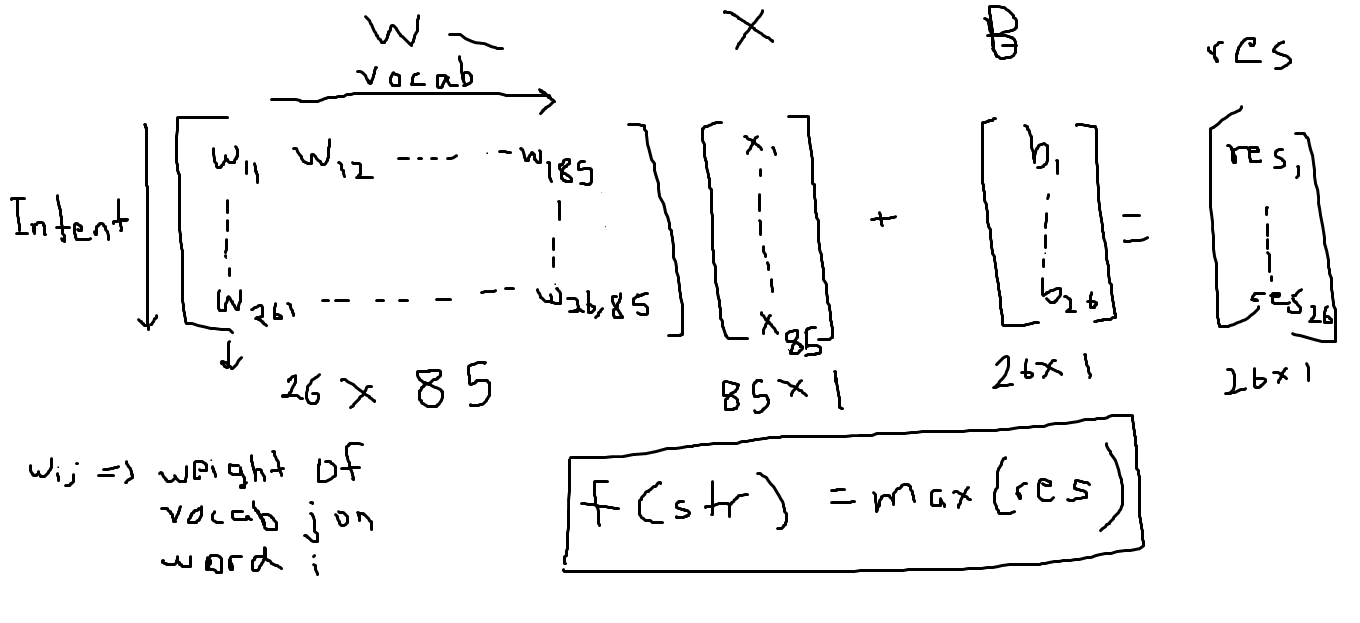 W X B res
vocab
Intent
w11 w12 ---- -w185 x1 b1 res1
+ =
w261 -- - - - -- w26,85 x85 b26 res26
26 x 85 85 x 1 26x 1 26x 1
wij => weight of
vocab j on
word i
f(str) = max(res)